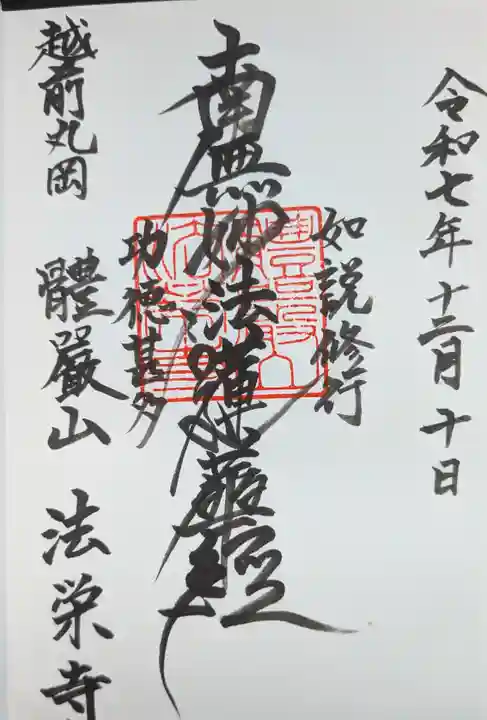 令和七年十二月十日
如説修行
南無妙法蓮華経
功徳甚多
越前丸岡
體嚴山
法栄寺